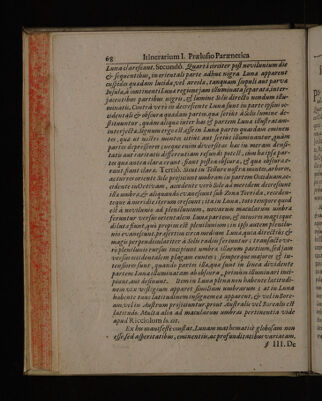 68 Itinerarium I. Prælusio Parænetica
Luna clarescant. Secundò. Quarta circiter post novilunium die
& sequentibus, in orientali parte adhuc nigra Luna apparent
cuspides quædam lucidæ, vel areolæ, tanquam scopuli aut parva
Insulæ, à continenti Luna regione jam illuminata separatæ, inter-
jacentibus partibus nigris, & lumine Solis directo nondum illu-
minatis. Contra verò in decrescente Luna sunt in parte ipsius oc-
cidentali & obscura quædam partes, quæ seriùs à Solis lumine de-
stituuntur, quàm aliquæ inter has & partem Luna illustratam
interjectæ. Signum ergo est esse in Luna partes quasdam eminen-
tes, quæ ut nostri montes citiùs aut seriùs illuminantur, quàm
partes depressiores: neque enim diversitas hæc in meram densi-
tatis aut raritatis differentiam refundi potest, cùm hæ ipsæ par-
tes quæ antea claræ erant, fiant postea obscuræ, & quæ obscuræ e-
rant fiant claræ. Tertiò. Sicut in Tellure nostra montes, arbores,
ac turres oriente Sole projiciunt umbram in partem Occiduam, oc-
cidente in Ortivam, ascendente verò Sole ad meridiem decrescunt
illæ umbræ, & aliquando evanescunt sub Zona Torrida, receden-
teque à meridie iterum crescunt; ita in Luna, toto tempore quod
est à novilunio ad plenilunium, novarum macularum umbræ
feruntur versus orientalem Lunæ partem, & minores magisque
dilutæ fiunt, quò propius est plenilunium; in ipso autem plenilu-
nio evanescunt, præsertim circa medium Lunæ, quia directiùs &
magis perpendiculariter à Solis radiis feriuntur: transacto ve-
rò plenilunio rursus incipiunt umbræ illarum partium, sed jam
versùs occidentalem plagam euntes; semperque majores & in-
tensiores sunt, quando partes illæ, quæ sunt in linea dividente
partem Lunæ illuminatam ab obscura, primùm illuminari inci-
piunt, aut desinunt. Item in Luna plena non habente latitudi-
nem vix vestigium apparet similium umbrarum: at in Luna
habente tunc latitudinem insignem eæ apparent, & vel in Borea-
um, vel in Austrum projiciuntur, prout Australis vel Borealis est
latitudo. Multa alia ad macularum umbras pertinentia vide
apud Ricciolum lic. cit.
Ex his manifestè constat, Lunam mathematicè globosam non
esse, sed asperitatibus, eminentiis, ac profunditatibus variatam.
§ III. De